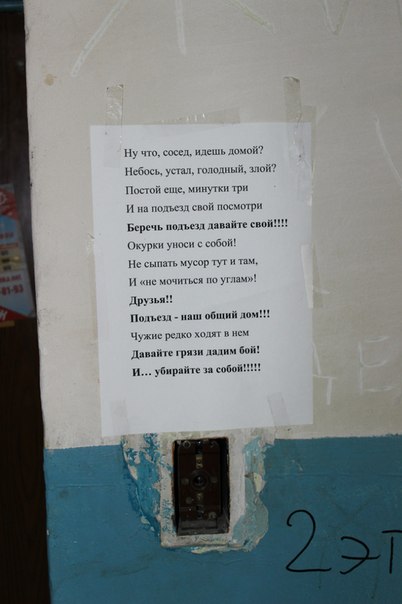 Ну что, сосед, идешь домой?
Небось, устал, голодный, злой?
Постой еще, минутки три
И на подъезд свой посмотри
Беречь подъезд давайте свой!!!!
Окурки уноси с собой!
Не сыпать мусор тут и там,
И «не мочиться по углам»!
Друзья!!
Подъезд - наш общий дом!!!
Чужие редко ходят в нем
Давайте грязи дадим бой!
И... убирайте за собой!!!!!
2 эт